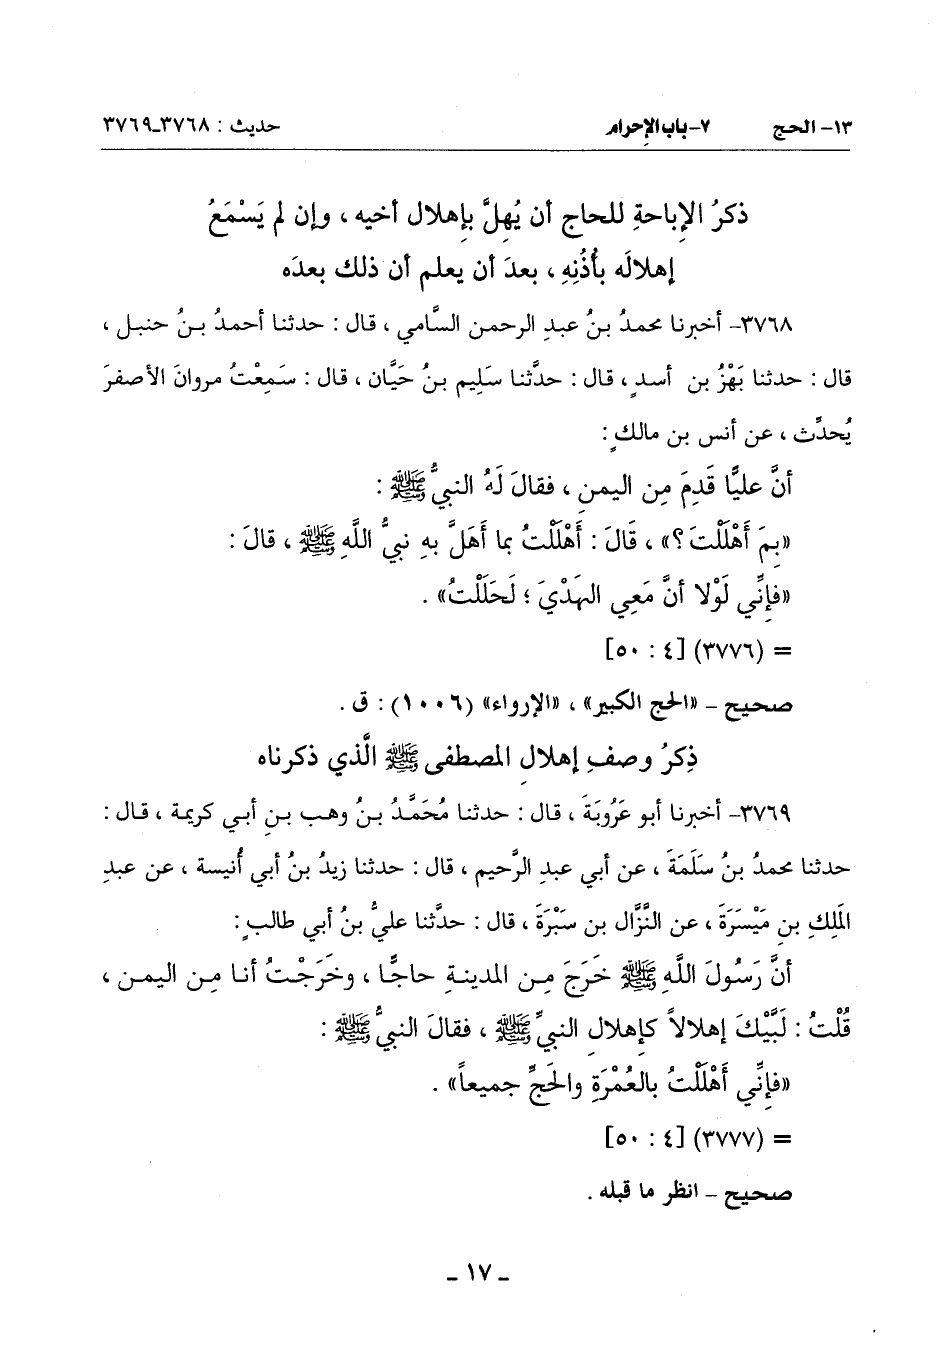 ١٣- الحج ٧-باب الإحرام حديث : ٣٧٦٨ـ٣٧٦٩
ذكرُ الإِباحةِ للحاج أن يُهِلَّ بِإهلال أخيه ، وإن لم يَسْمَعُ
إهلالَه بأُذُنِهِ ، بعدَ أن يعلم أن ذلك بعدَه
٣٧٦٨- أخبرنا محمدُ بنُ عبدِ الرحمن السَّامي ، قال : حدثنا أحمدُ بنُ حنبل ،
قال : حدثنا بَهْزُ بن أسدٍ ، قال : حدَّثنا سَلِيم بنُ حَيَّان ، قال : سَمِعْتُ مروانَ الأصفرَ
يُحدِّث ، عن أنس بن مالكٍ :
أنَّ عليًّا قَدِمَ مِن اليمنِ ، فقالَ لَهُ النبيُّ ﷺ :
«بِمَ أَهْلَلْتَ ؟» ، قَالَ : أَهْلَلْتُ بما أَهَلَّ بهِ نبيُّ اللَّهِ ﷺ ، قالَ :
«فإنِّي لَوْلا أنَّ مَعِي الهَدْيَ ؛ لَحَلَلْتُ» .
= (٣٧٧٦) [٤ : ٥٠]
صحيح - «الحج الكبير» ، «الإرواء» (١٠٠٦) : ق .
ذِكرُ وصفِ إهلالِ المصطفى ﷺ الَّذي ذكرناه
٣٧٦٩- أخبرنا أبو عَرُوبَةَ ، قال : حدثنا مُحَمَّدُ بنُ وهب بنِ أبي كريمة ، قال :
حدثنا محمدُ بنُ سَلَمَةَ ، عن أبي عبدِ الرَّحيم ، قال : حدثنا زيدُ بنُ أبي أُنيسة ، عن عبدِ
المَلِكِ بنِ مَيْسَرَةَ ، عن النَّزَّال بن سَبْرَةَ ، قال : حدَّثنا عليُّ بنُ أبي طالبٍ :
أنَّ رَسُولَ اللَّهِ ﷺ خَرَجَ مِن المدينةِ حاجًّا ، وخَرَجْتُ أنا مِن اليمن ،
قُلْتُ : لَبَّيْكَ إهلالاً كإهلالِ النبيِّ ﷺ ، فقالَ النبيُّ ﷺ :
«فإنِّي أَهْلَلْتُ بالعُمْرَةِ والحَجِّ جميعاً» .
= (٣٧٧٧) [٤ : ٥٠]
صحيح - انظر ما قبله .
ـ ١٧ ـ